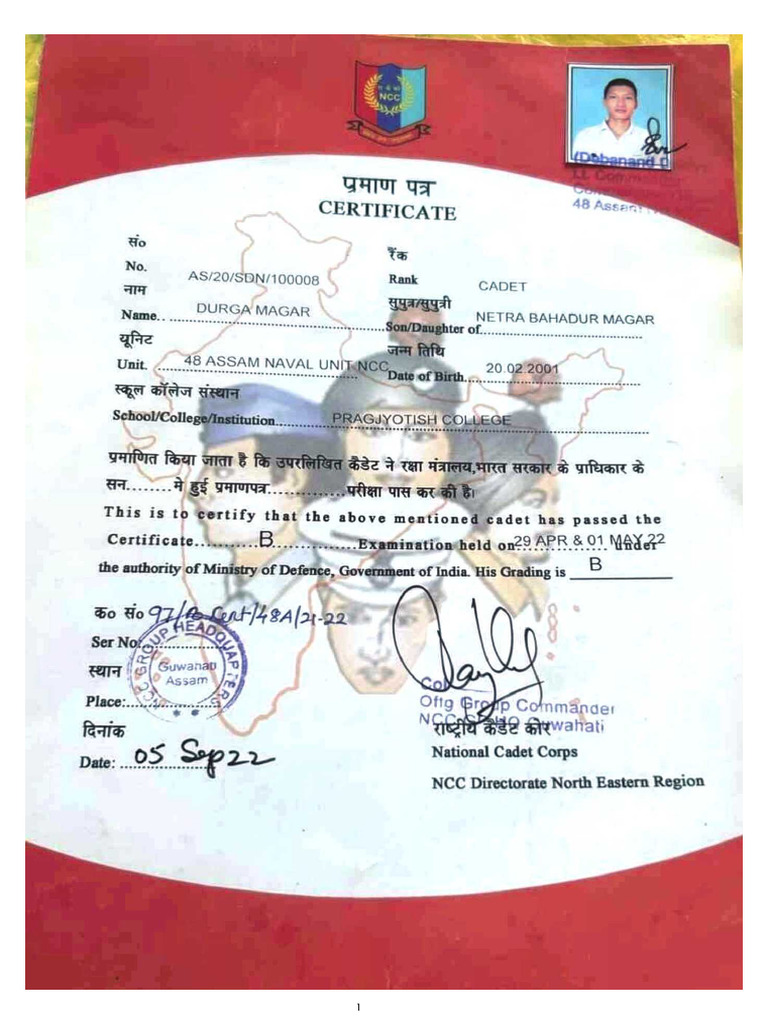 NCC
प्रमाण पत्र
CERTIFICATE
(Debanand
Lt. Comm
48 Assam
संo
No. AS/20/SDN/100008
रैंक
Rank CADET
नाम
Name. DURGA MAGAR
सुपुत्र/सुपुत्री
Son/Daughter of NETRA BAHADUR MAGAR
यूनिट
Unit. 48 ASSAM NAVAL UNIT NCC
जन्म तिथि
Date of Birth 20.02.2001
स्कूल कॉलेज संस्थान
School/College/Institution PRAGJYOTISH COLLEGE
प्रमाणित किया जाता है कि उपरलिखित कैडेट ने रक्षा मंत्रालय,भारत सरकार के प्राधिकार के
सन.........मे हुई प्रमाणपत्र...............परीक्षा पास कर की है।
This is to certify that the above mentioned cadet has passed the
Certificate B Examination held on 29 APR & 01 MAY 22 under
the authority of Ministry of Defence, Government of India. His Grading is B
कo संo
Ser No: 97/B Cert/48A/21-22
NCC GROUP HEADQUARTERS
Guwahati
Assam
स्थान
Place:
Offg Group Commander
NCC Guwahati
राष्ट्रीय कैडेट कोर
दिनांक
Date: 05 Sep 22
National Cadet Corps
NCC Directorate North Eastern Region
1